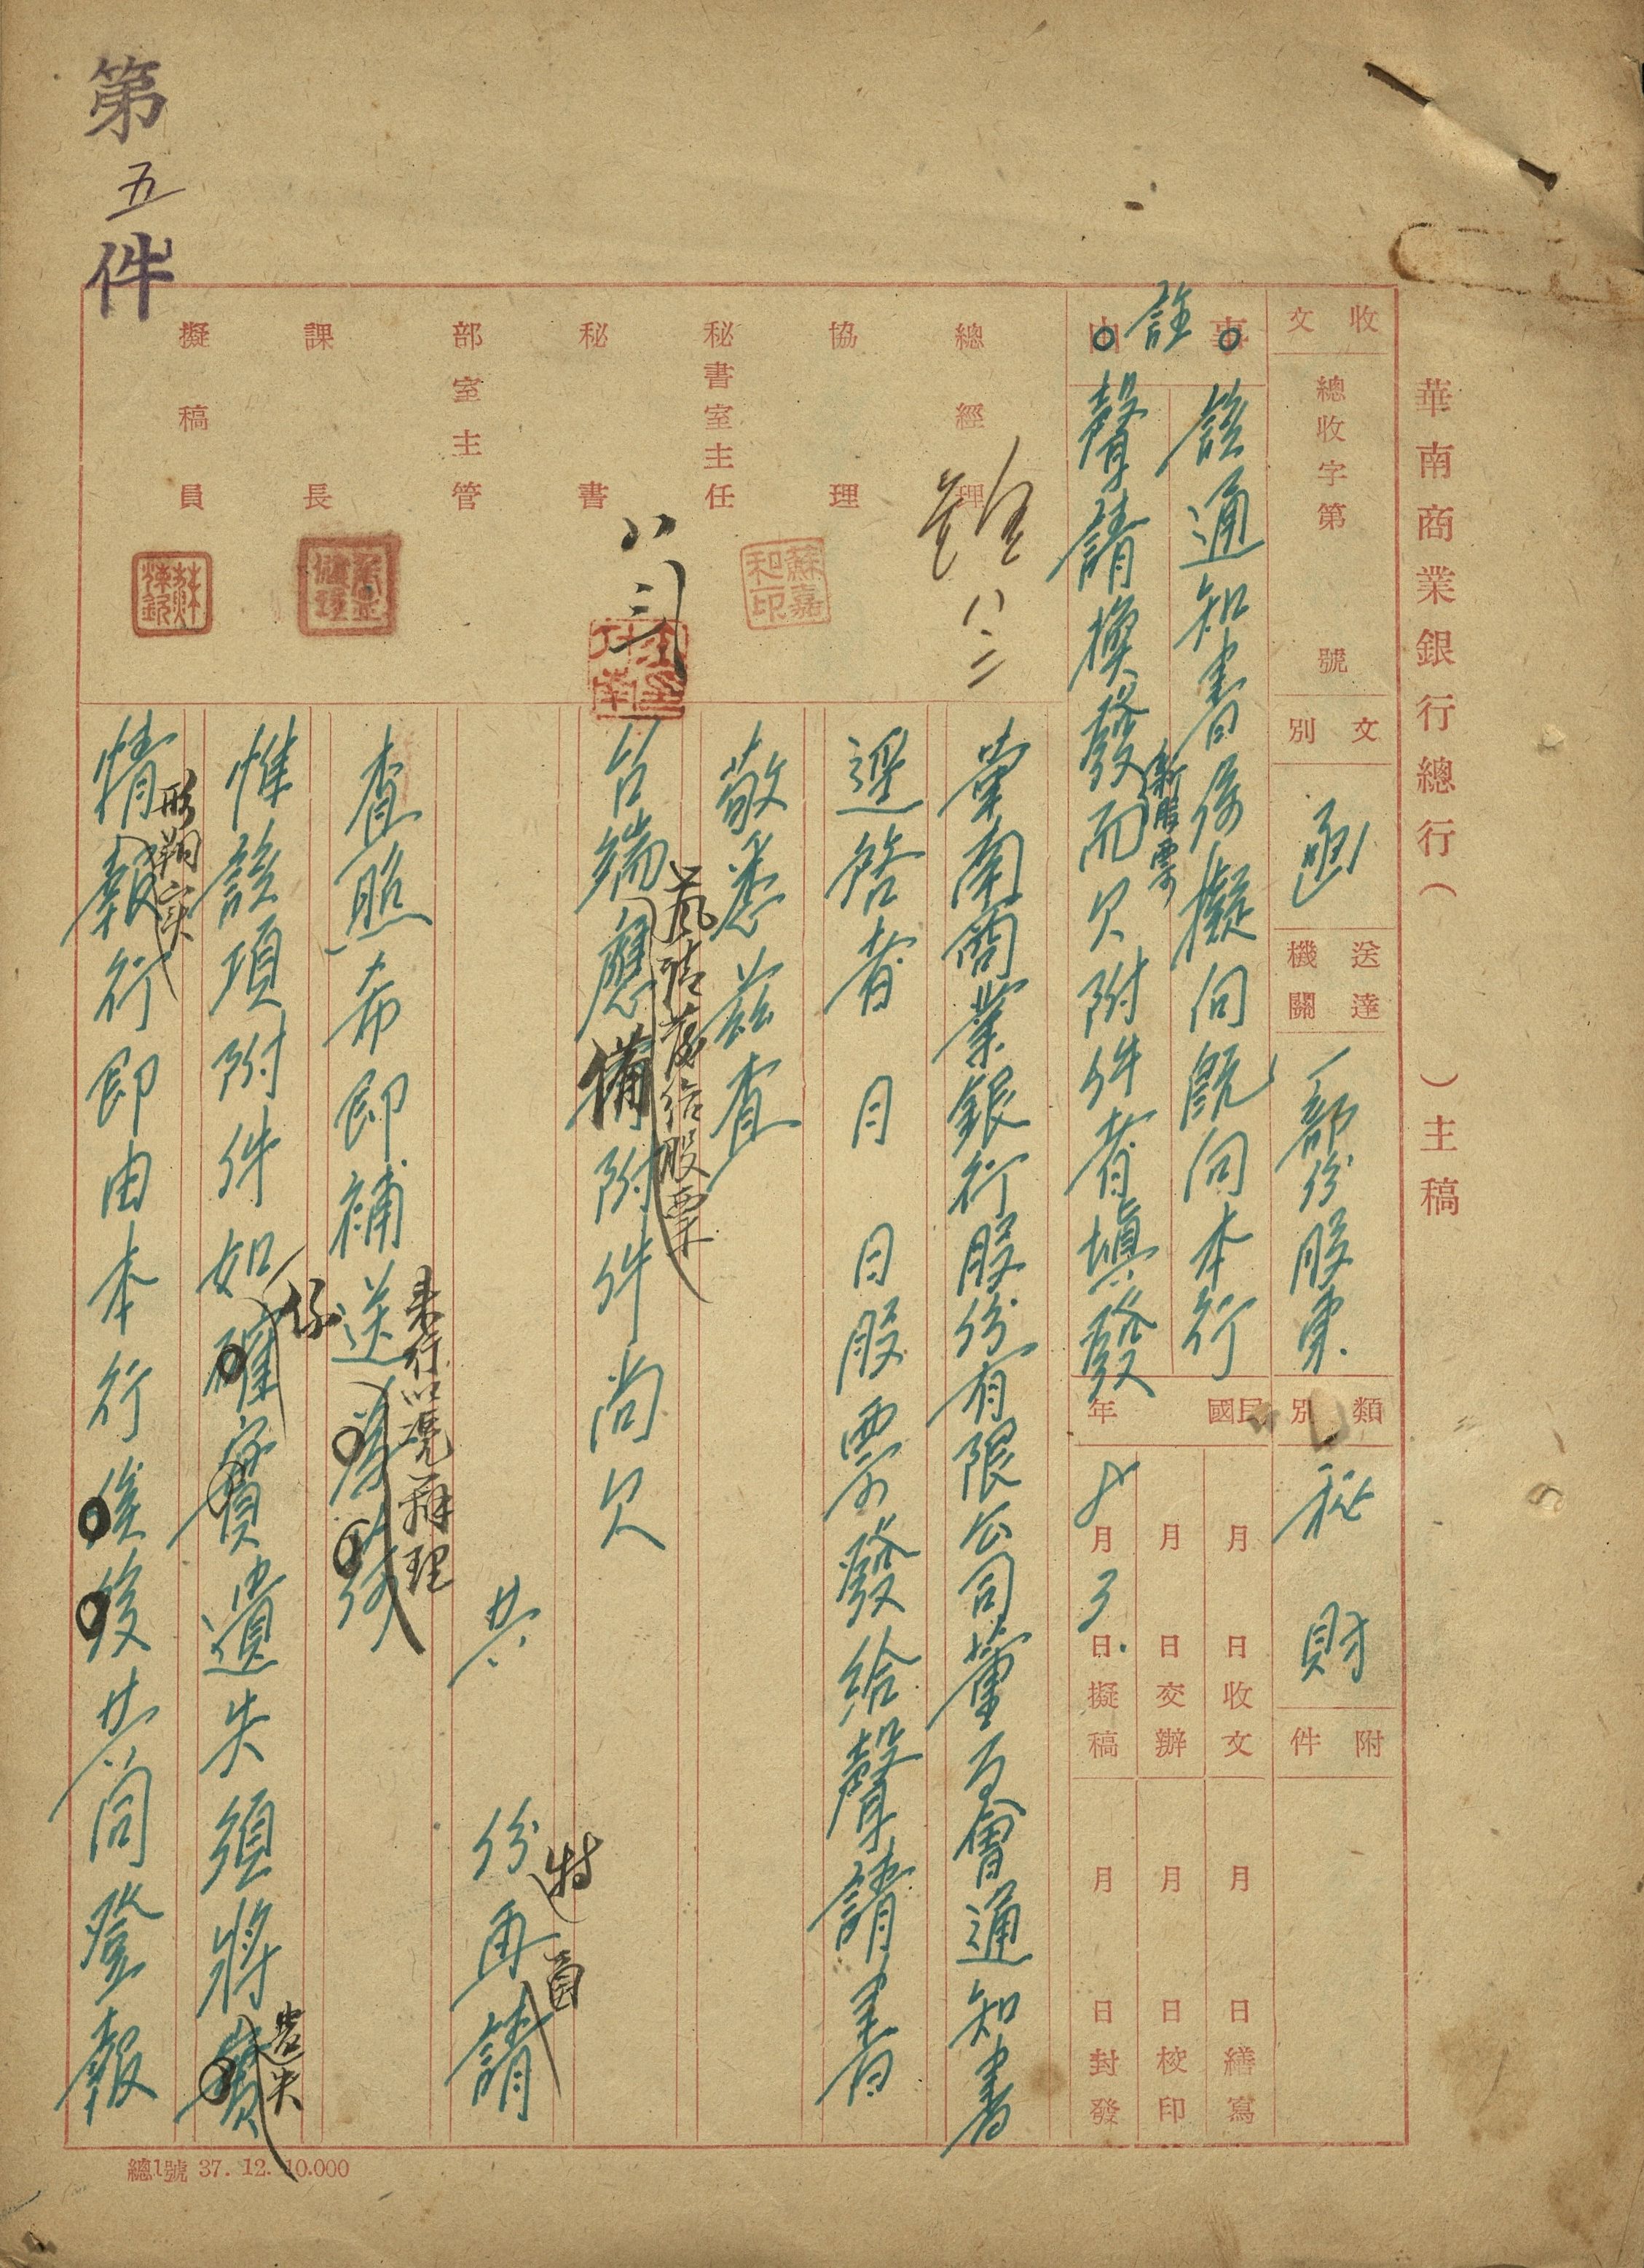 第五件
華南商業銀行總行（　　）主稿
收文
總收字第　　號
文別
函
送達機關
一部份股東
類別
秘 財
附件
事由
註
該通知書係擬向既向本行
聲請換發新股票而欠附件者填發
民國　年
月　日收文
月　日交辦
八月3日擬稿
月　日繕寫
月　日校印
月　日封發
總經理
八、二
協理
蘇嘉和印
秘書室主任
秘書
八
部室主管
課長
擬稿員
華南商業銀行股份有限公司董事會通知書
逕啓者　月　日股票發給聲請書
敬悉茲查
台端應備附件尚欠
換發給股票
共　份再請
特函
查照希即補送為荷
來行以憑辦理
惟該項附件如確實遺失須將實
仔
遺失
情報行即由本行俟後共同登報
形翔实
總1號 37. 12. 10.000